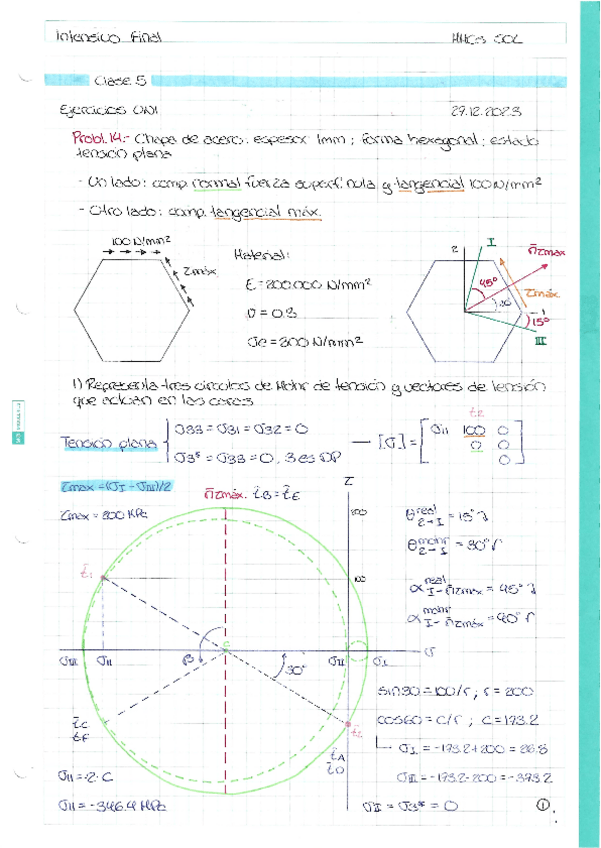 Intensivo Final MMCS SOL
Clase 5
Ejercicios UNI 29.12.2023
Probl.14.- Chapa de acero: espesor 1mm; forma hexagonal; estado
tensión plana
- Un lado: comp. normal fuerza superf. nula y tangencial 100 N/mm²
- Otro lado: comp. tangencial máx.
100 N/mm²
τmáx
Material:
E = 200.000 N/mm²
ν = 0.3
σe = 300 N/mm²
2
I
n̄τmáx
45º
30
τmáx
1
15º
III
1) Representa tres círculos de Mohr de tensión y vectores de tensión
que actúan en las caras
Tensión plana
σ33 = σ31 = σ32 = 0
σ3* = σ33 = 0, 3 es DP
t̄2
[σ] = [ σ11 100 0
0 0
0 ]
τmax = (σI - σIII)/2
τmax = 200 MPa
n̄τmáx. t̄B = t̄E
τ
200
100
t̄1
σIII σ11 β 30º σII σI σ
t̄C
t̄F
t̄2
t̄A
t̄D
θ real 2→I = 15º
θ mohr 2→I = 30º
α real I→n̄τmáx = 45º
α mohr I→n̄τmáx = 90º
sin30 = 100/r; r = 200
cos60 = c/r; c = 173.2
σI = -173.2 + 200 = 26.8
σIII = -173.2 - 200 = -373.2
σII = σ3* = 0
σ11 = -2·C
σ11 = -346.4 MPa
1